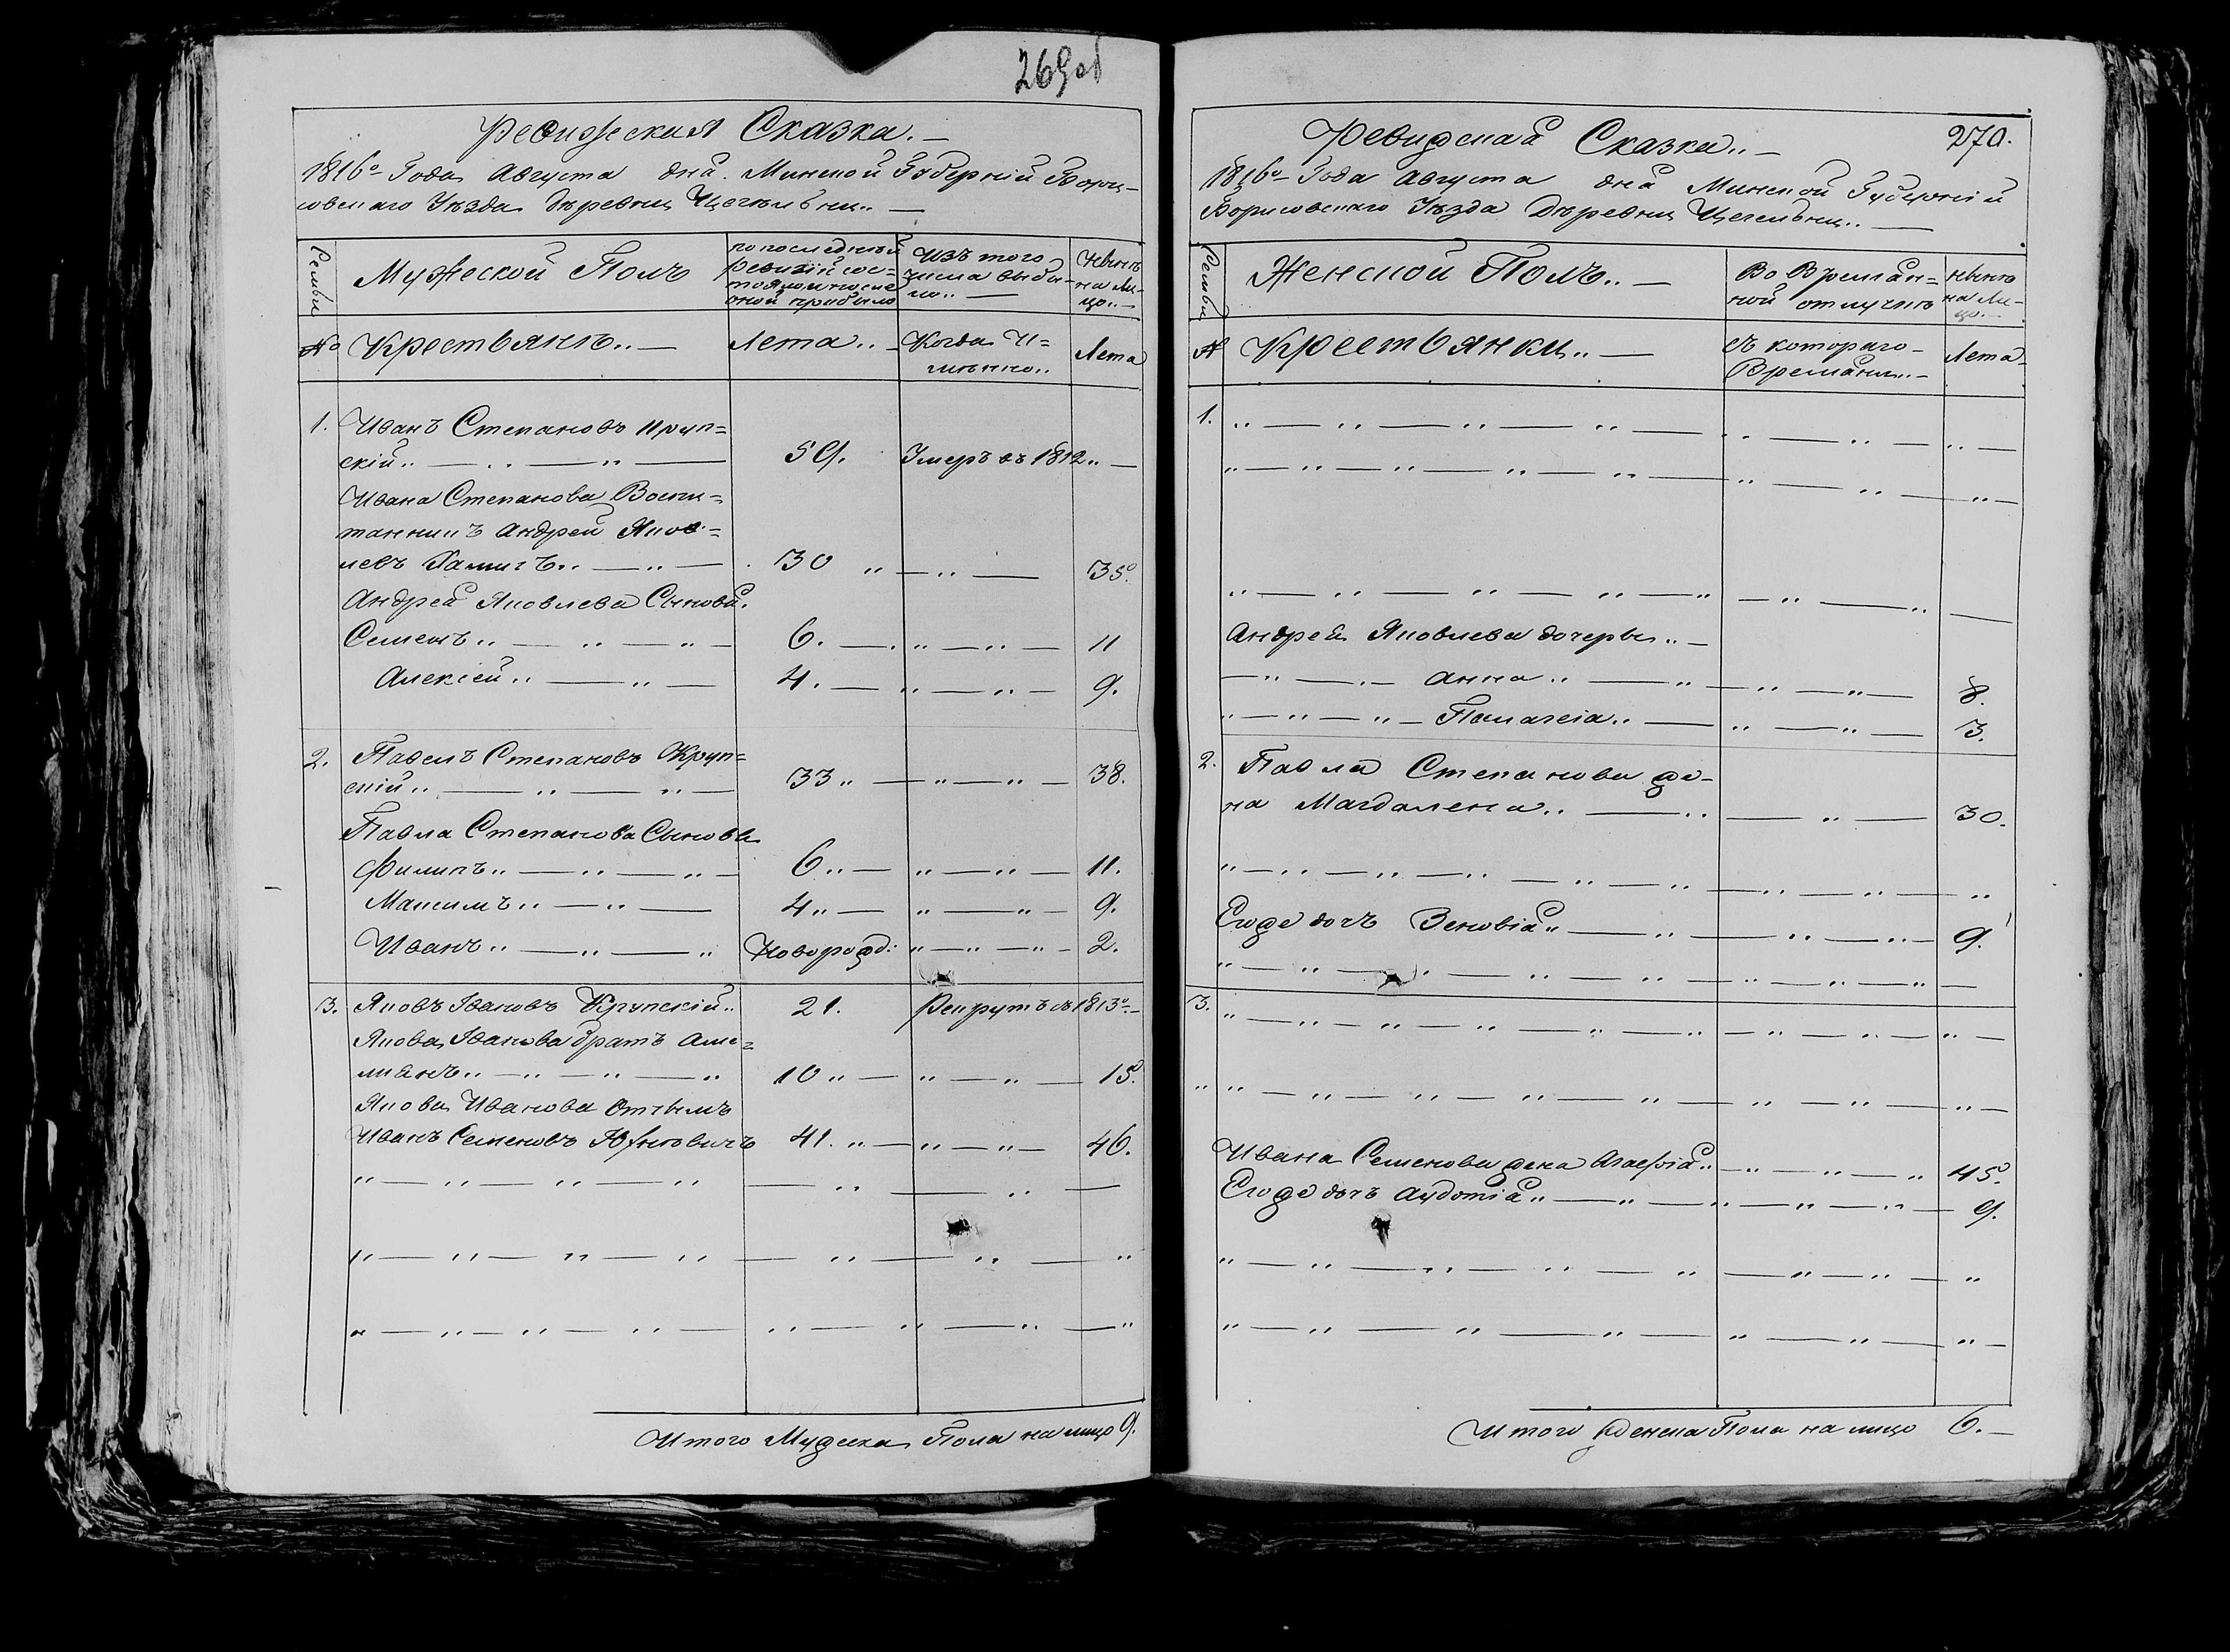 269об
Ревизская Сказка. —
1816го Года Августа дня. Минской Губерній Бори-
совскаго Уѣзда Дѣревни Цегельни.. —
Семьи
Мужеской Полъ
по последней
Ревизій сос-
тояло и после
оной прибыло
Изъ того
числа выбы-
ло.. —
Нынѣ
на Ли-
цо.. —
№ Крестьянѣ.. — Лета.. — Когда И= Лета
мянно..
1. Иванъ Степановъ Круп=
скій.. — 59. Умеръ въ 1812.. —
Ивана Степанова Воспи=
танникъ Андрей Яков=
левъ — 30 35.
Андрея Яковлева Сыновья.
Семенъ.. — 6. — 11
Алексей.. — 4. — 9.
2. Павелъ Степановъ Круп=
скій.. — 33.. — 38.
Павла Степанова Сыновья
Филипъ.. — 6.. — 11.
Максимъ.. — 4.. — 9.
Иванъ.. — Новорожд: — 2.
3. Яковъ Ивановъ Крупскій.. 21. Рекрутъ въ 1813го —
Якова Иванова братъ Аме=
лиянъ.. — 10.. — 15.
Якова Иванова Отчымъ
Иванъ Семеновъ 41. .. — 46.
Итого Мужеска Пола на лицо 9.
270.
Ревизская Сказка.. —
1816го Года Августа дня Минской Губерній
Борисовскаго Уѣзда Дѣревни Цегельни.. —
Семьи
Женской Полъ.. —
Во Времян=
ной отлучке
нынѣ
на Ли-
цо. —
№ Крестьянки.. — съ котораго — Лета —
Времяни.. —
1.
Андрея Яковлева дочеры.. —
Анна.. — 8.
Палагеія.. — 3.
2. Павла Степанова же-
на Магдалена.. — 30.
Егоже дочъ Зеновія.. — 9.
3.
Ивана Семенова жена Агафія.. — 45.
Егоже дочъ Аудотія.. — 9.
Итого Женска Пола на лицо 6. —